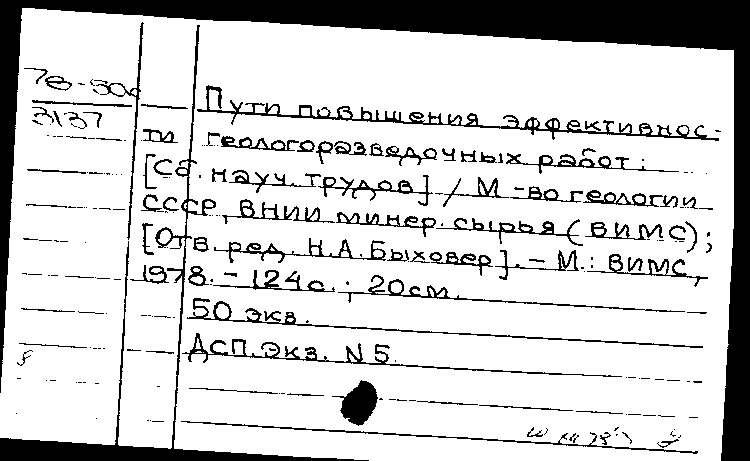 3137
Пути повышения эффективнос-
ти геологоразведочных работ:
[Сб. науч. трудов] / М-во геологии
СССР, ВНИИ минер. сырья (ВИМС);
[Отв. ред. Н.А. Быховер]. – М.: ВИМС,
1978. – 124с.; 20см.
50 экз.
ДСП. Экз. N 5.